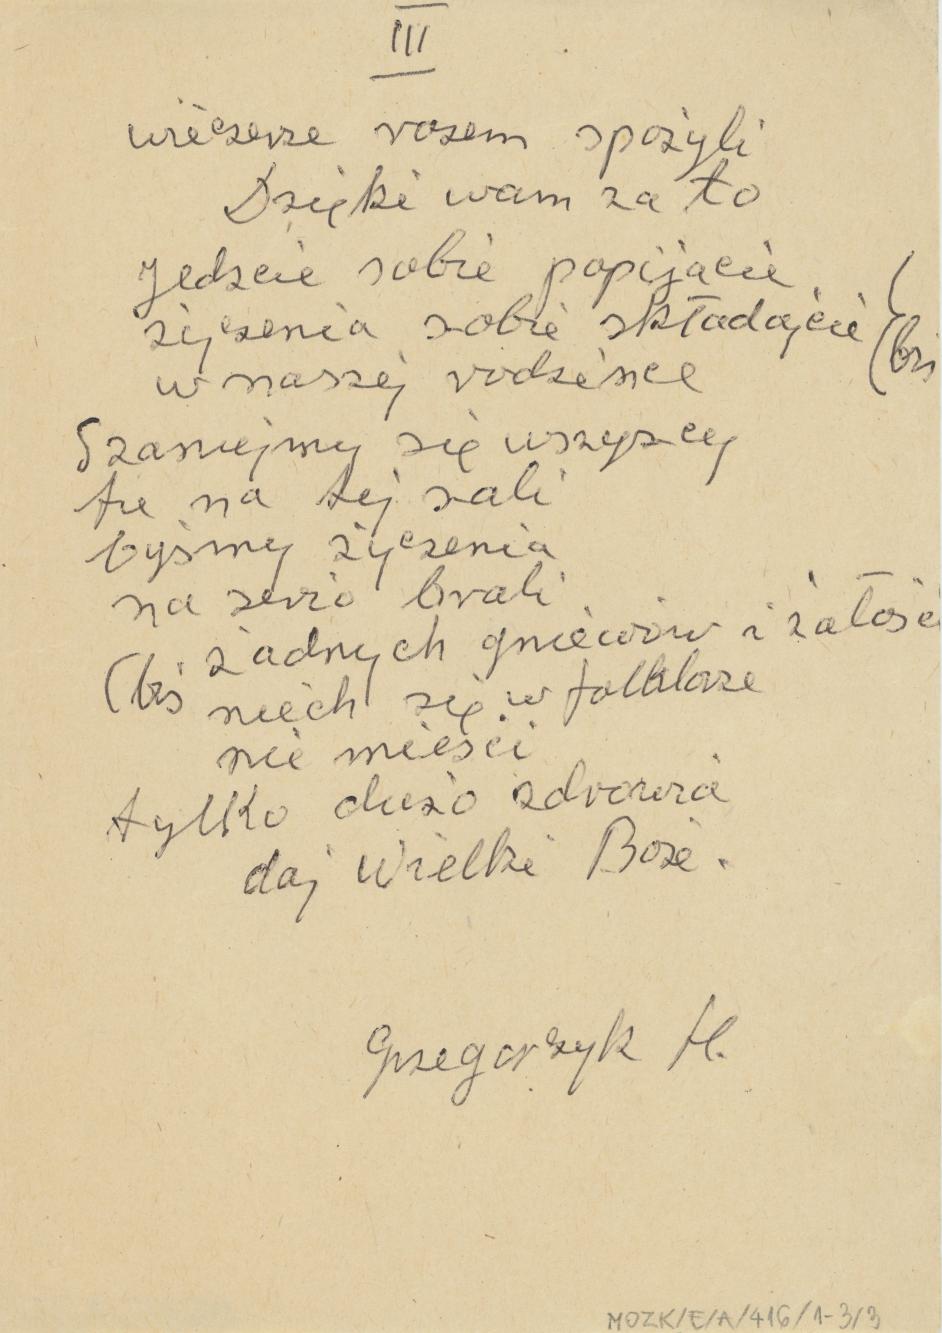 III
wieczerze razem spożyli
Dzięki wam za to
Jedzcie sobie popijacie
życzenia sobie składajcie (bis
w naszej rodzince
Szanujmy się wszyscy
tu na tej sali
byśmy życzenia
na serio brali
żadnych gniewów i żałości
(bis niech się w folklorze
nie mieści
tylko dużo zdrowia
daj Wielki Boże.
Grzegorzyk H.
MOZK/E/A/416/1-3/3